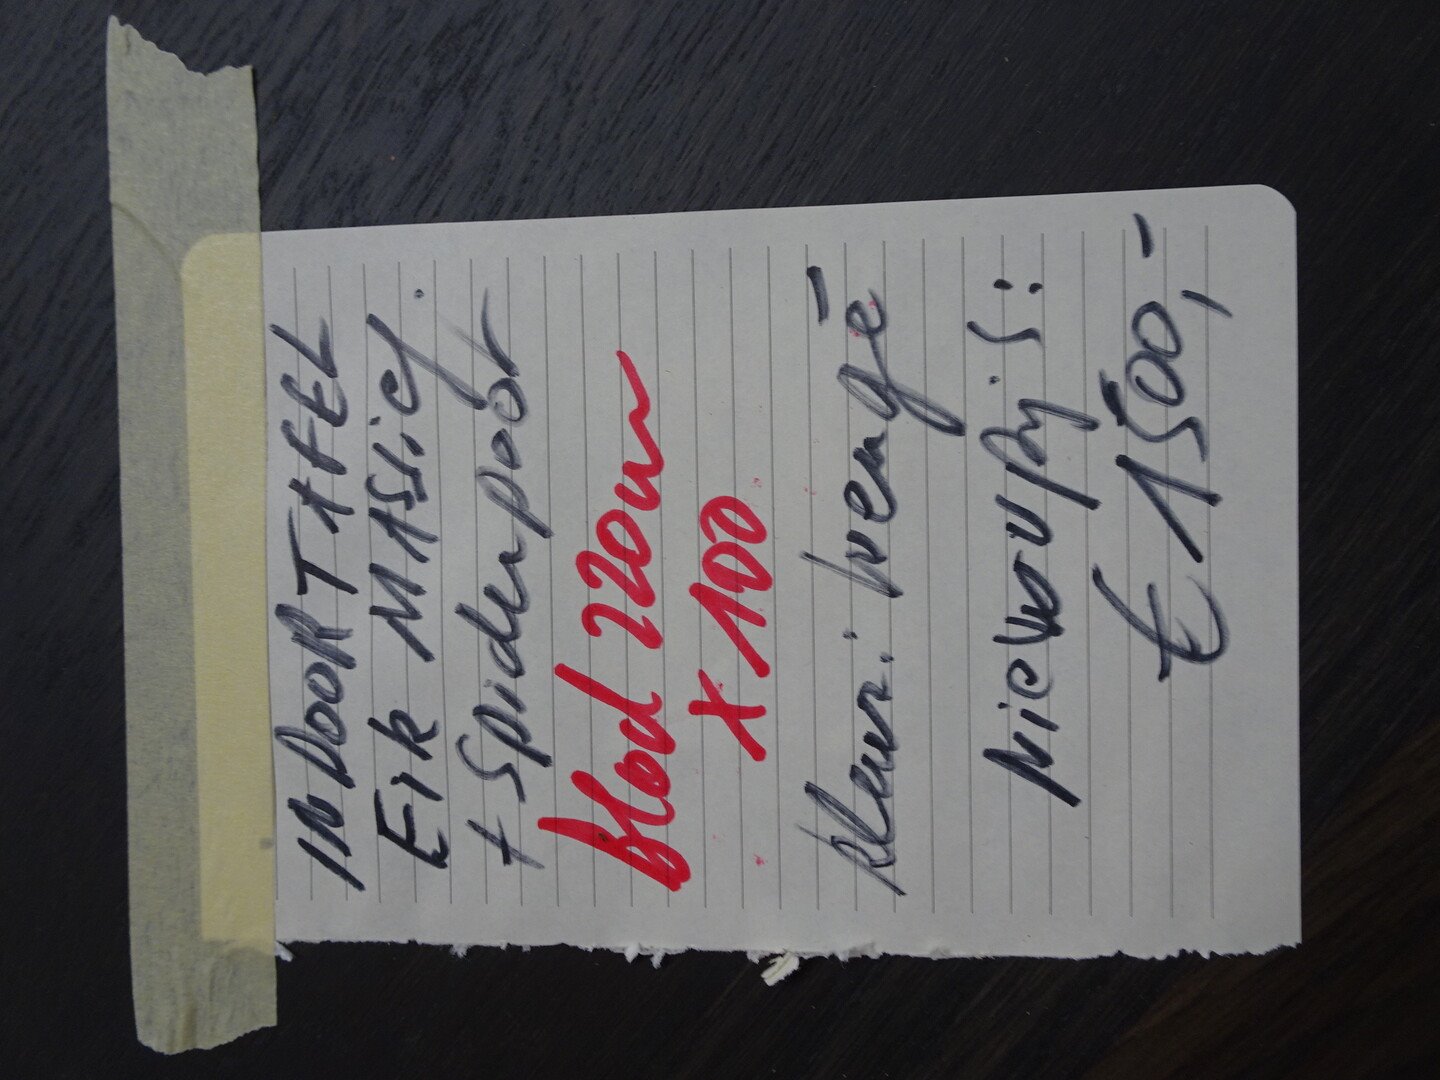 INDOORTAFEL
Eik MASSief.
+ Spiderpoot
blad 220cm
x 100
kleur: wengé
Nieuwprijs:
€ 1500,-